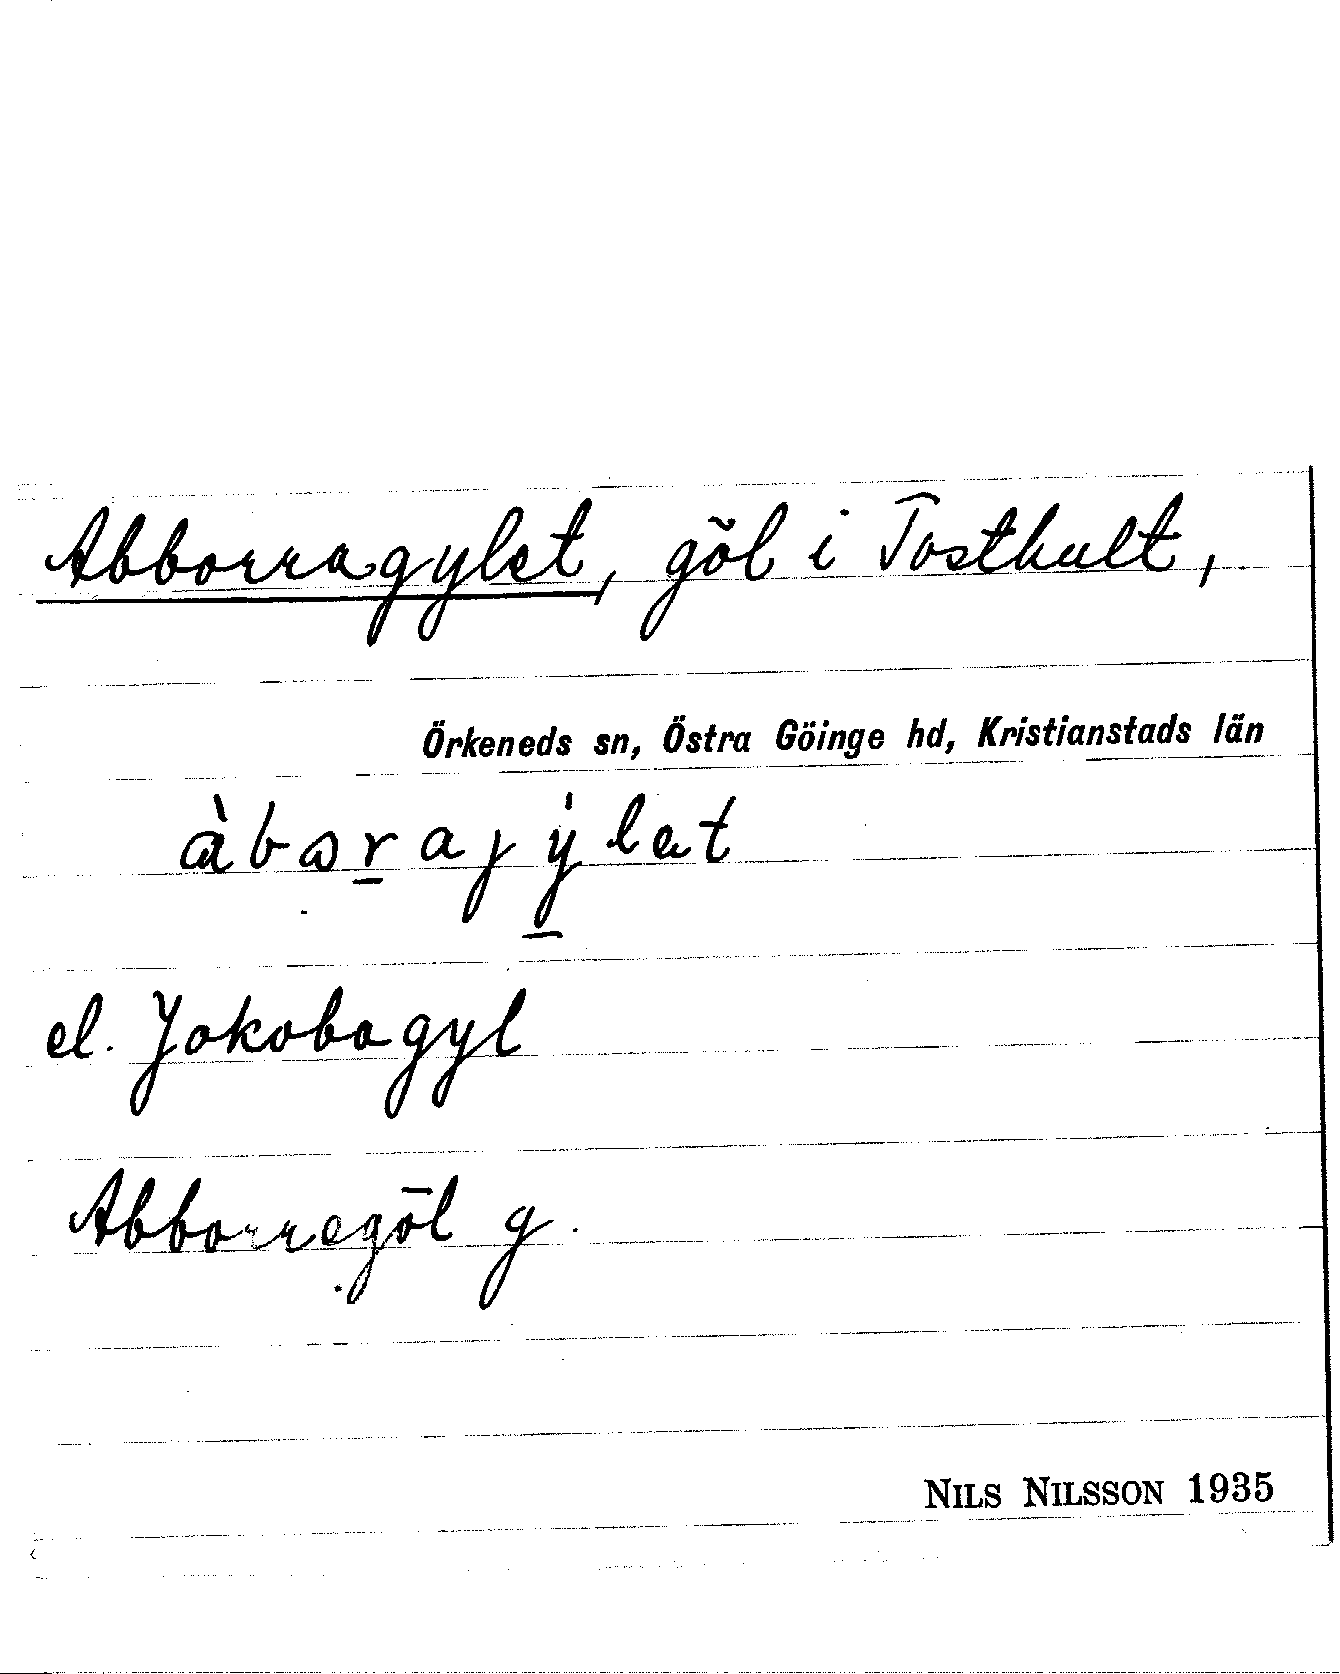 Abborragylet, göl i Tosthult,
Örkeneds sn, Östra Göinge hd, Kristianstads län
àbɷr̲ajẏ̲lɐt
el. Jakobagyl
Abborregöl g.
NILS NILSSON 1935